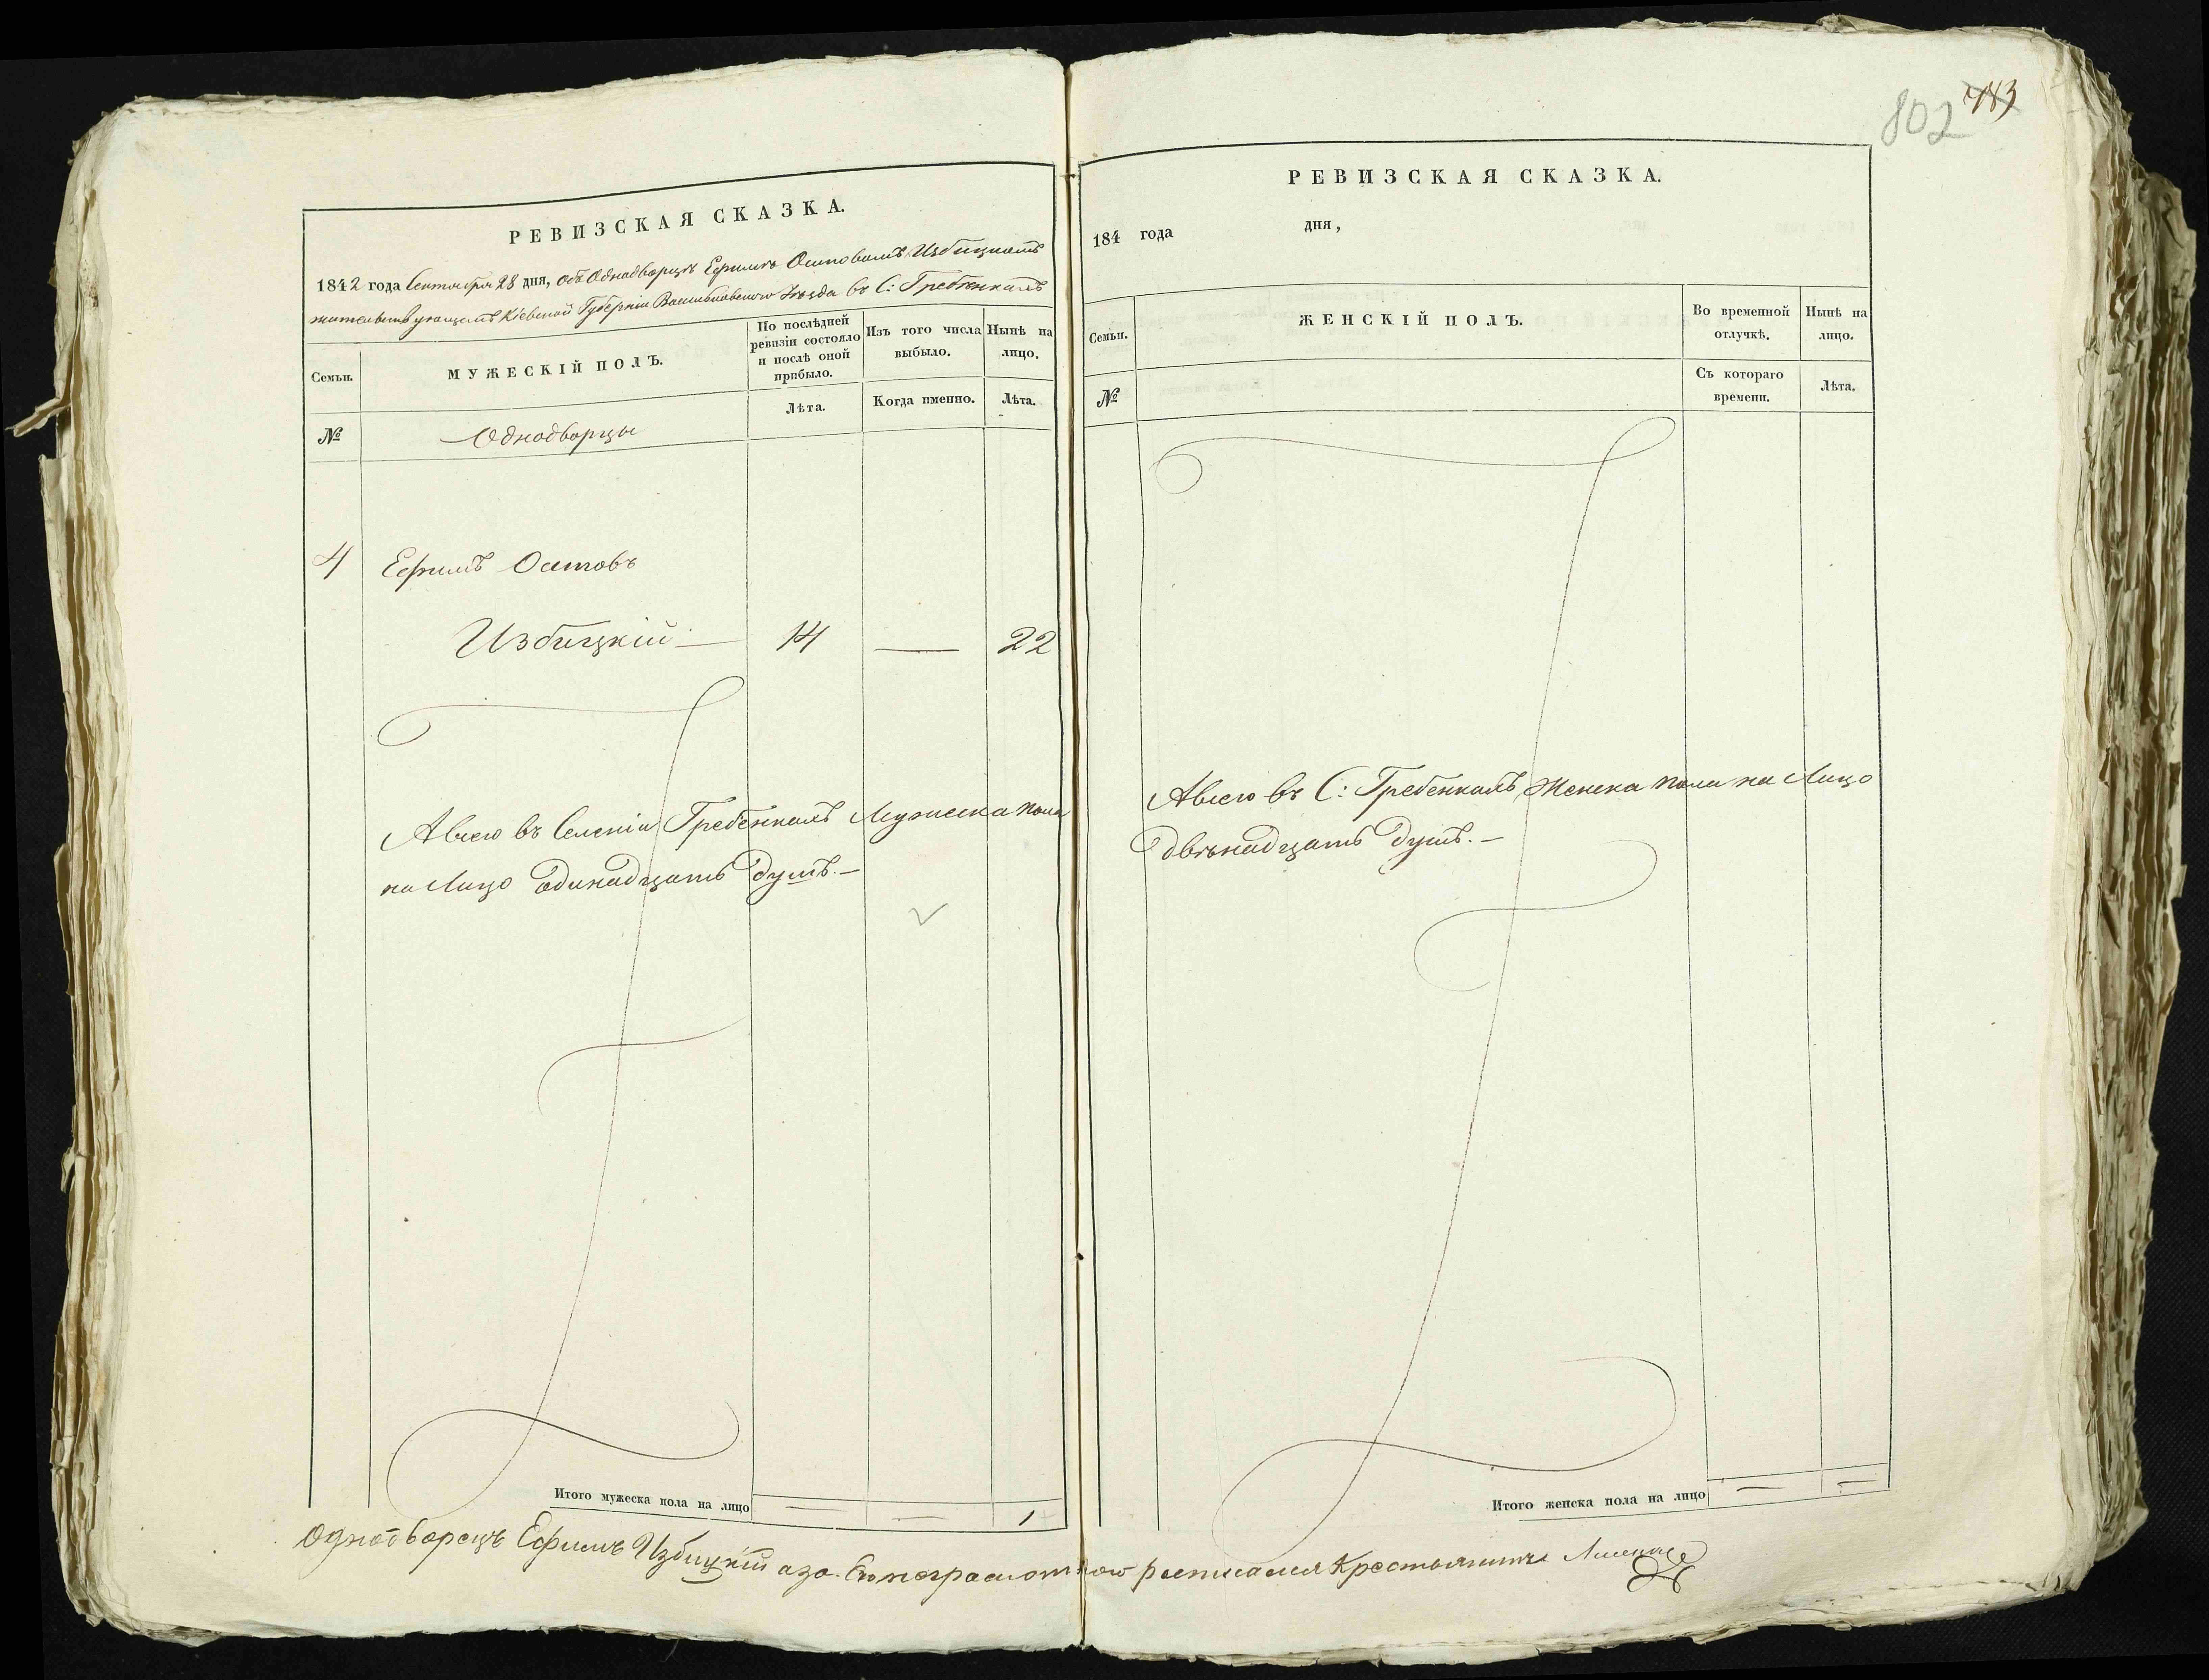 РЕВИЗСКАЯ СКАЗКА.
1842 года Сентября 28 дня, объ Однодворцѣ Ефимѣ Осиповомъ Избицкомъ
жительствующемъ Кіевской Губерніи Васильковского Уѣзда въ С: Гребенкахъ
Семьи.
МУЖЕСКІЙ ПОЛЪ.
По послѣдней
ревизіи состояло
и послѣ оной
прибыло.
Изъ того числа
выбыло.
Нынѣ на
лицо.
Лѣта.
Когда именно.
Лѣта.
№
Однодворцы
4 Ефимъ Осиповъ
Избицкій 14 — 22
А всего въ Селеніи Гребенкахъ Мужеска пола
на Лицо одинадцать душъ. —
Итого мужеска пола на лицо — — 1
802 783
РЕВИЗСКАЯ СКАЗКА.
184 года дня,
Семьи.
ЖЕНСКІЙ ПОЛЪ.
Во временной
отлучкѣ.
Нынѣ на
лицо.
№
Съ котораго
времени.
Лѣта.
А всего въ С: Гребенкахъ Женска пола на Лицо
двѣнадцать душъ. —
Итого женска пола на лицо — —
Однодворецъ Ефимъ Избицкій а за его неграмотного росписался Крестьянинъ